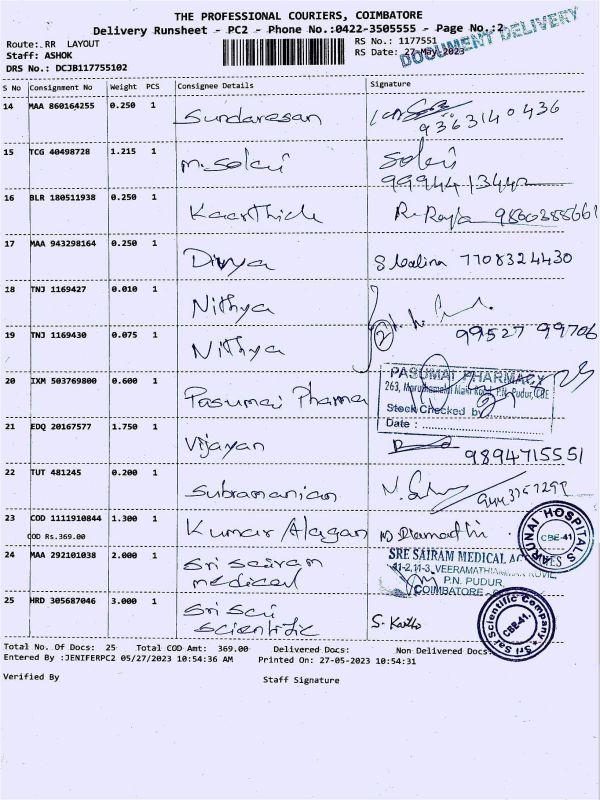 THE PROFESSIONAL COURIERS, COIMBATORE
Delivery Runsheet - PC2 - Phone No.:0422-3505555 - Page No.:2
DOCUMENT DELIVERY
Route: RR LAYOUT
RS No.: 1177551
Staff: ASHOK
RS Date: 27-May-2023
DRS No.: DCJB117755102
S No Consignment No Weight PCS Consignee Details Signature
14 MAA 860164255 0.250 1 Sundaresan
9363140436
15 TCG 40498728 1.215 1 M. Selvi Selvi
16 BLR 180511938 0.250 1 Kaarthick
17 MAA 943298164 0.250 1 Divya 7708324430
18 TNJ 1169427 0.010 1 Nithya
19 TNJ 1169430 0.075 1 Nithya 2 99527 99706
20 IXM 503769800 0.600 1 Pasumai Pharma
PASUMAI PHARMACY
263, Main Road, P.N. Pudur, CBE
Stock Checked by
Date :
21 EDQ 20167577 1.750 1 Vijayan 9894715551
22 TUT 481245 0.200 1 Subramanian
23 COD 1111910844 1.300 1 Kumar Alagan
COD Rs.369.00
ARUNAI HOSPITALS
CBE-41
24 MAA 292101038 2.000 1 Sri Sairam
medical
SRE SAIRAM MEDICAL AGENCIES
41-2, 11-3, VEERAMATHIAMMAN KOVIL
P.N. PUDUR,
COIMBATORE
25 HRD 305687046 3.000 1 Sri Sai
Scientific
Sri Sai Scientific Company
CBE-41.
Total No.Of Docs: 25 Total COD Amt: 369.00 Delivered Docs: Non Delivered Docs:
Entered By :JENIFERPC2 05/27/2023 10:54:36 AM Printed On: 27-05-2023 10:54:31
Verified By Staff Signature